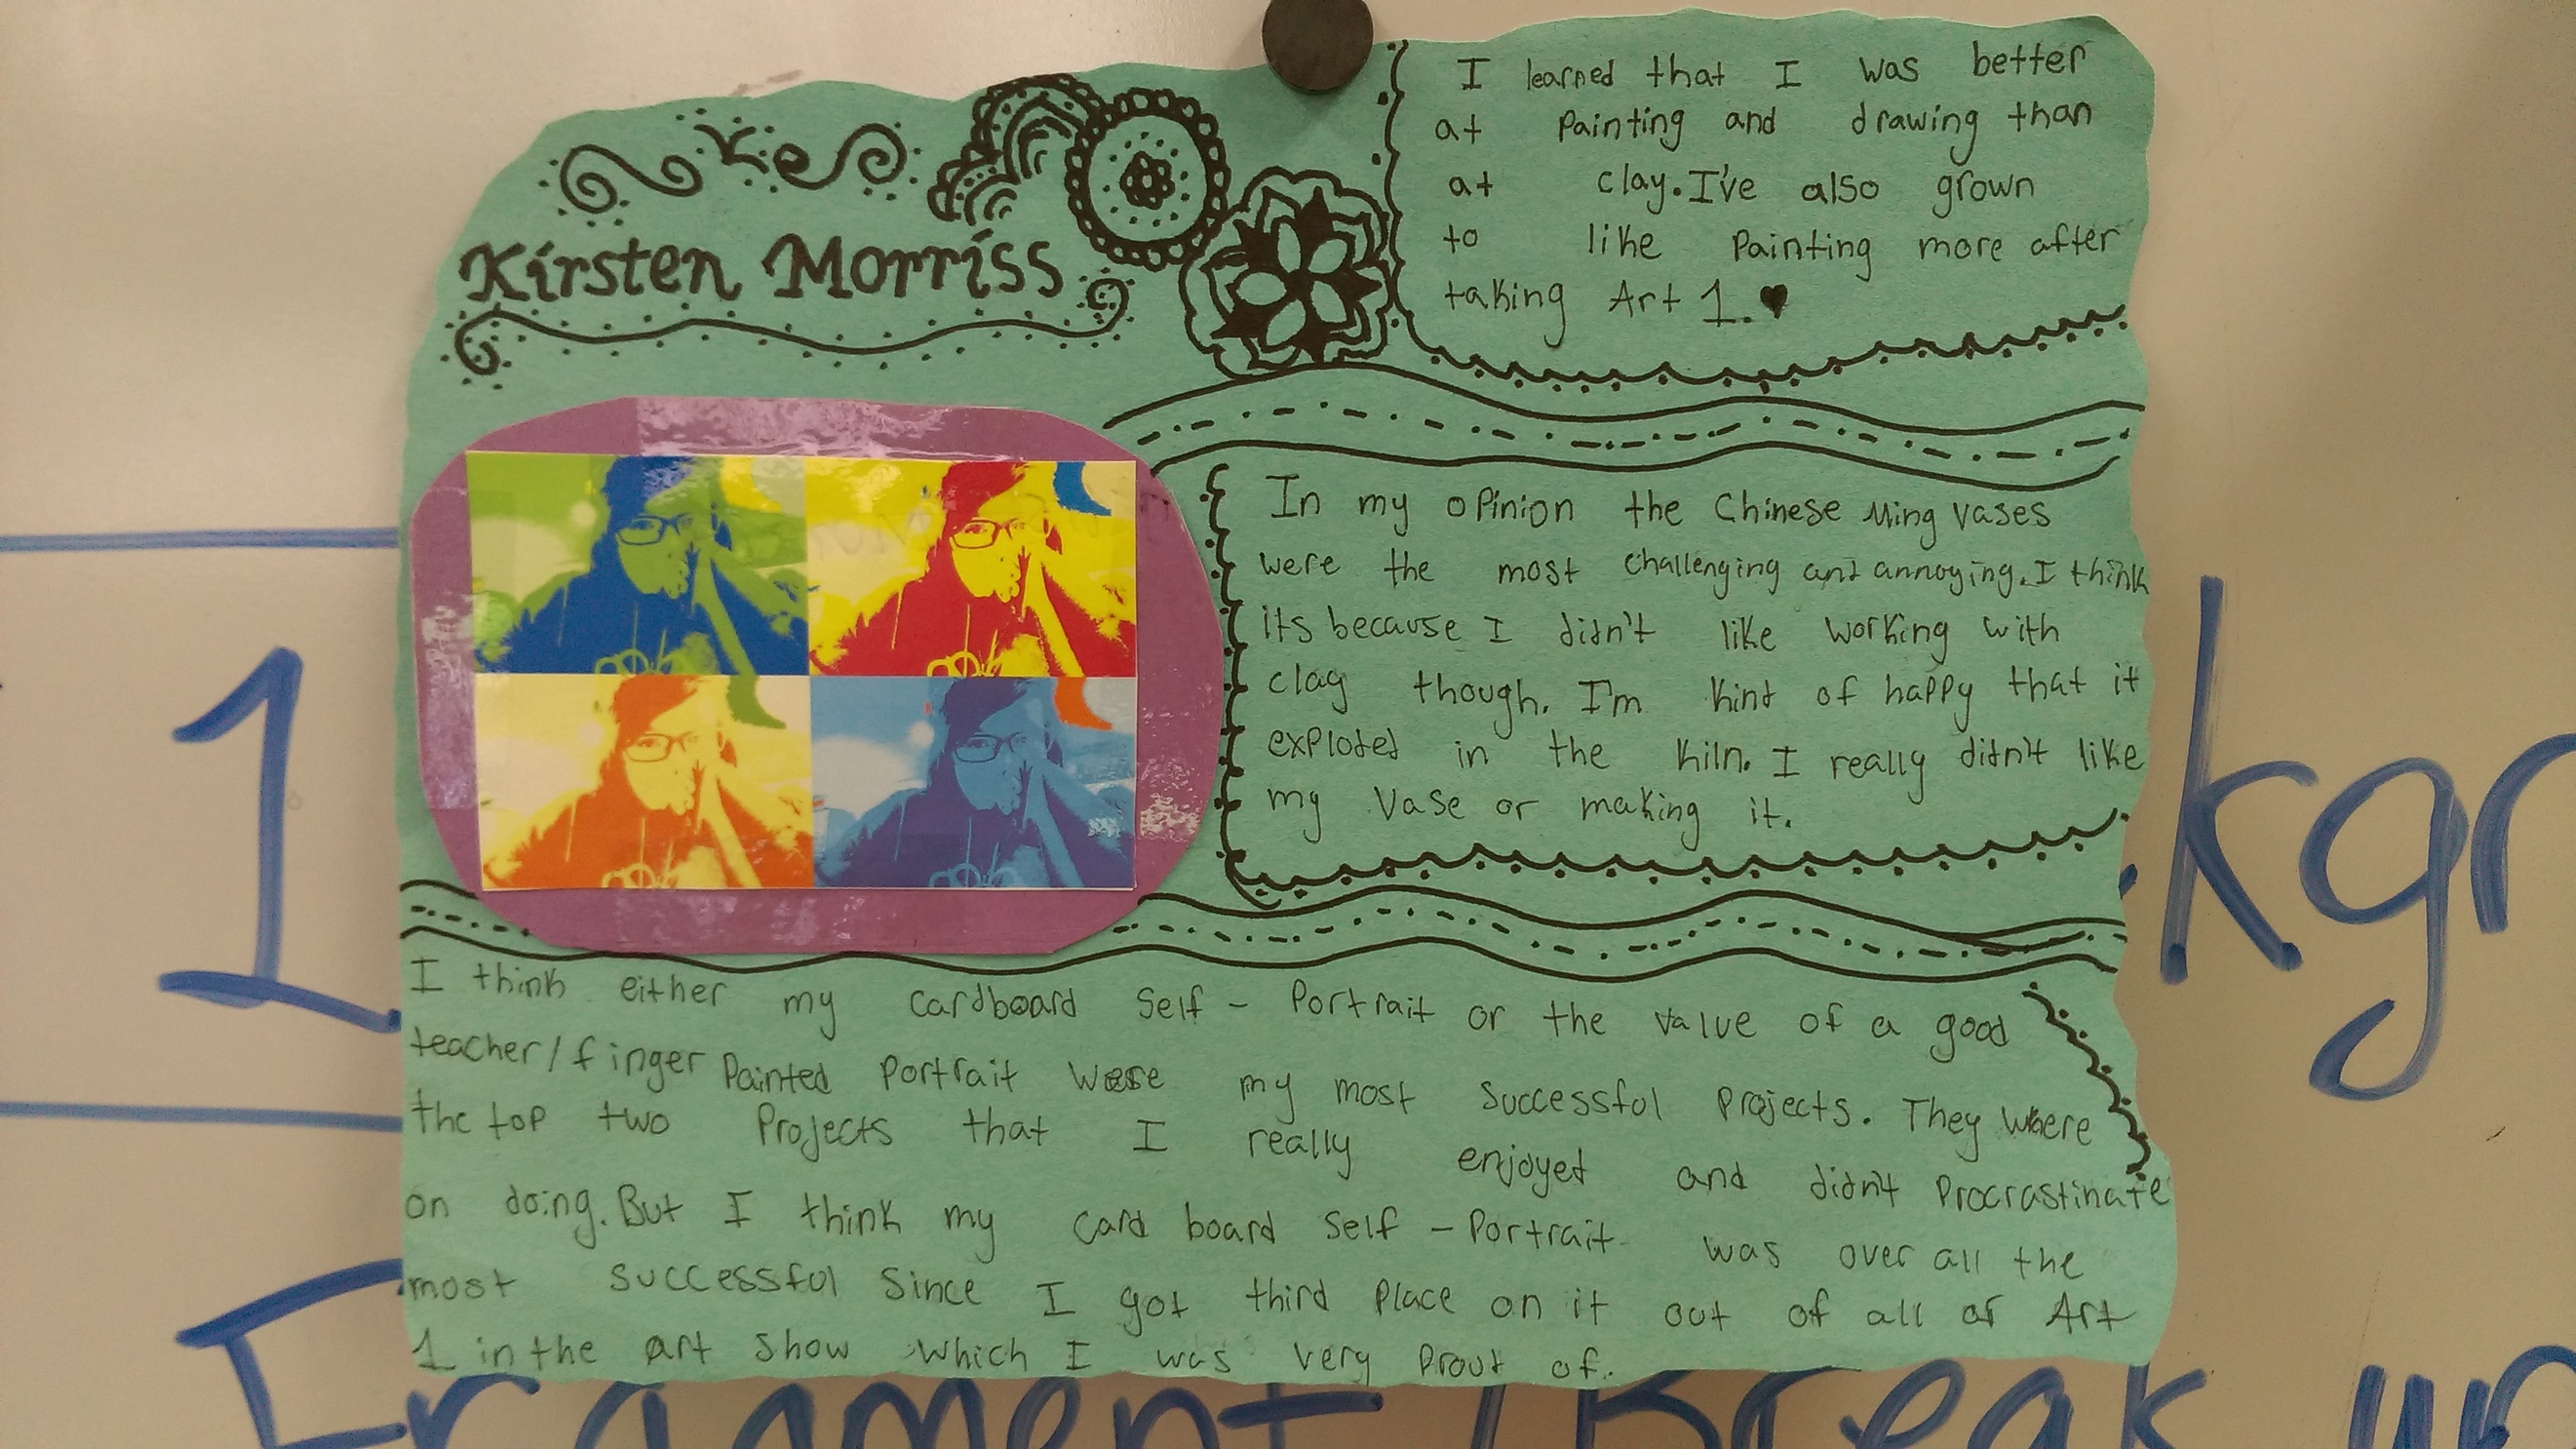 Kirsten Morriss
I learned that I was better
at painting and drawing than
at clay. I've also grown
to like painting more after
taking Art 1. ♥
In my opinion the Chinese Ming Vases
were the most challenging and annoying. I think
its because I didn't like working with
clay though. I'm kind of happy that it
exploded in the kiln. I really didn't like
my vase or making it.
I think either my cardboard self - Portrait or the value of a good
teacher/finger painted portrait were my most successful projects. They where
the top two projects that I really enjoyed and didn't procrastinate
on doing. But I think my card board self - Portrait was over all the
most successful since I got third place on it out of all of Art
1 in the art show which I was very proud of.
1
kgr
Fragment / Break up